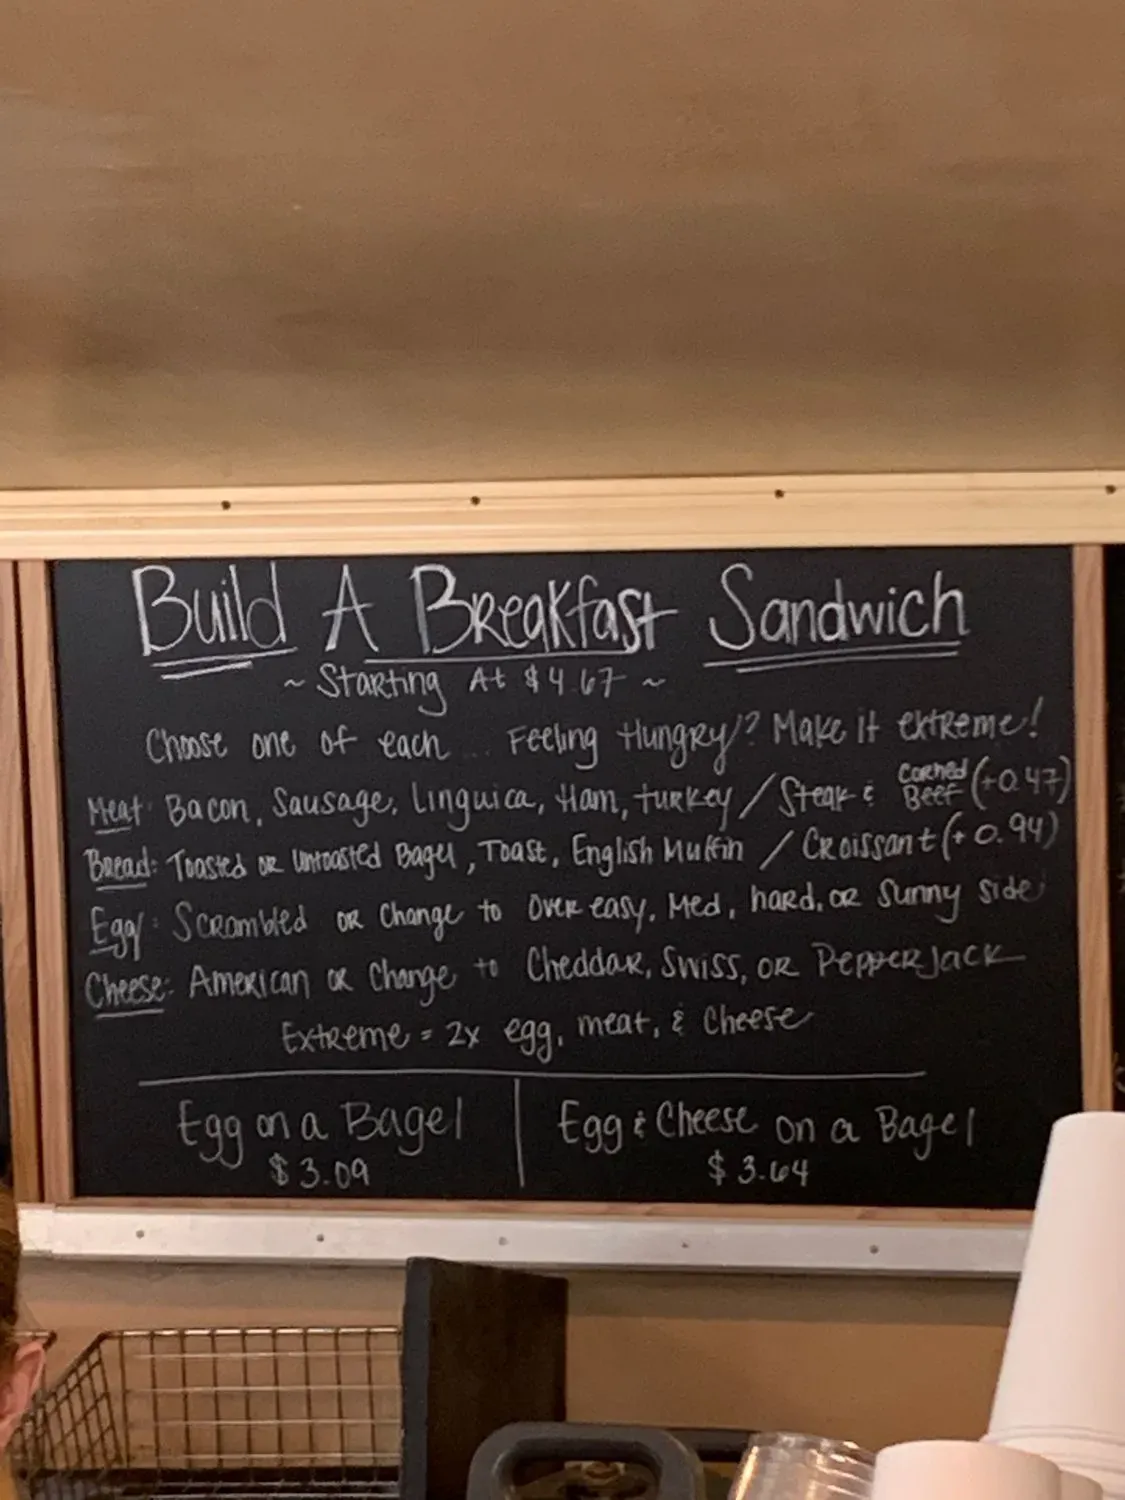 Build A Breakfast Sandwich
~ Starting At $4.67 ~
Choose one of each... Feeling Hungry? Make it extreme!
Meat: Bacon, Sausage, Linguica, Ham, turkey / Steak & Corned Beef (+0.47)
Bread: Toasted or Untoasted Bagel, Toast, English Muffin / Croissant (+0.94)
Egg: Scrambled or Change to Over easy, Med, hard, or Sunny side
Cheese: American or Change to Cheddar, Swiss, or PepperJack
Extreme = 2x egg, meat, & Cheese
Egg on a Bagel
$3.09
Egg & Cheese on a Bagel
$3.64